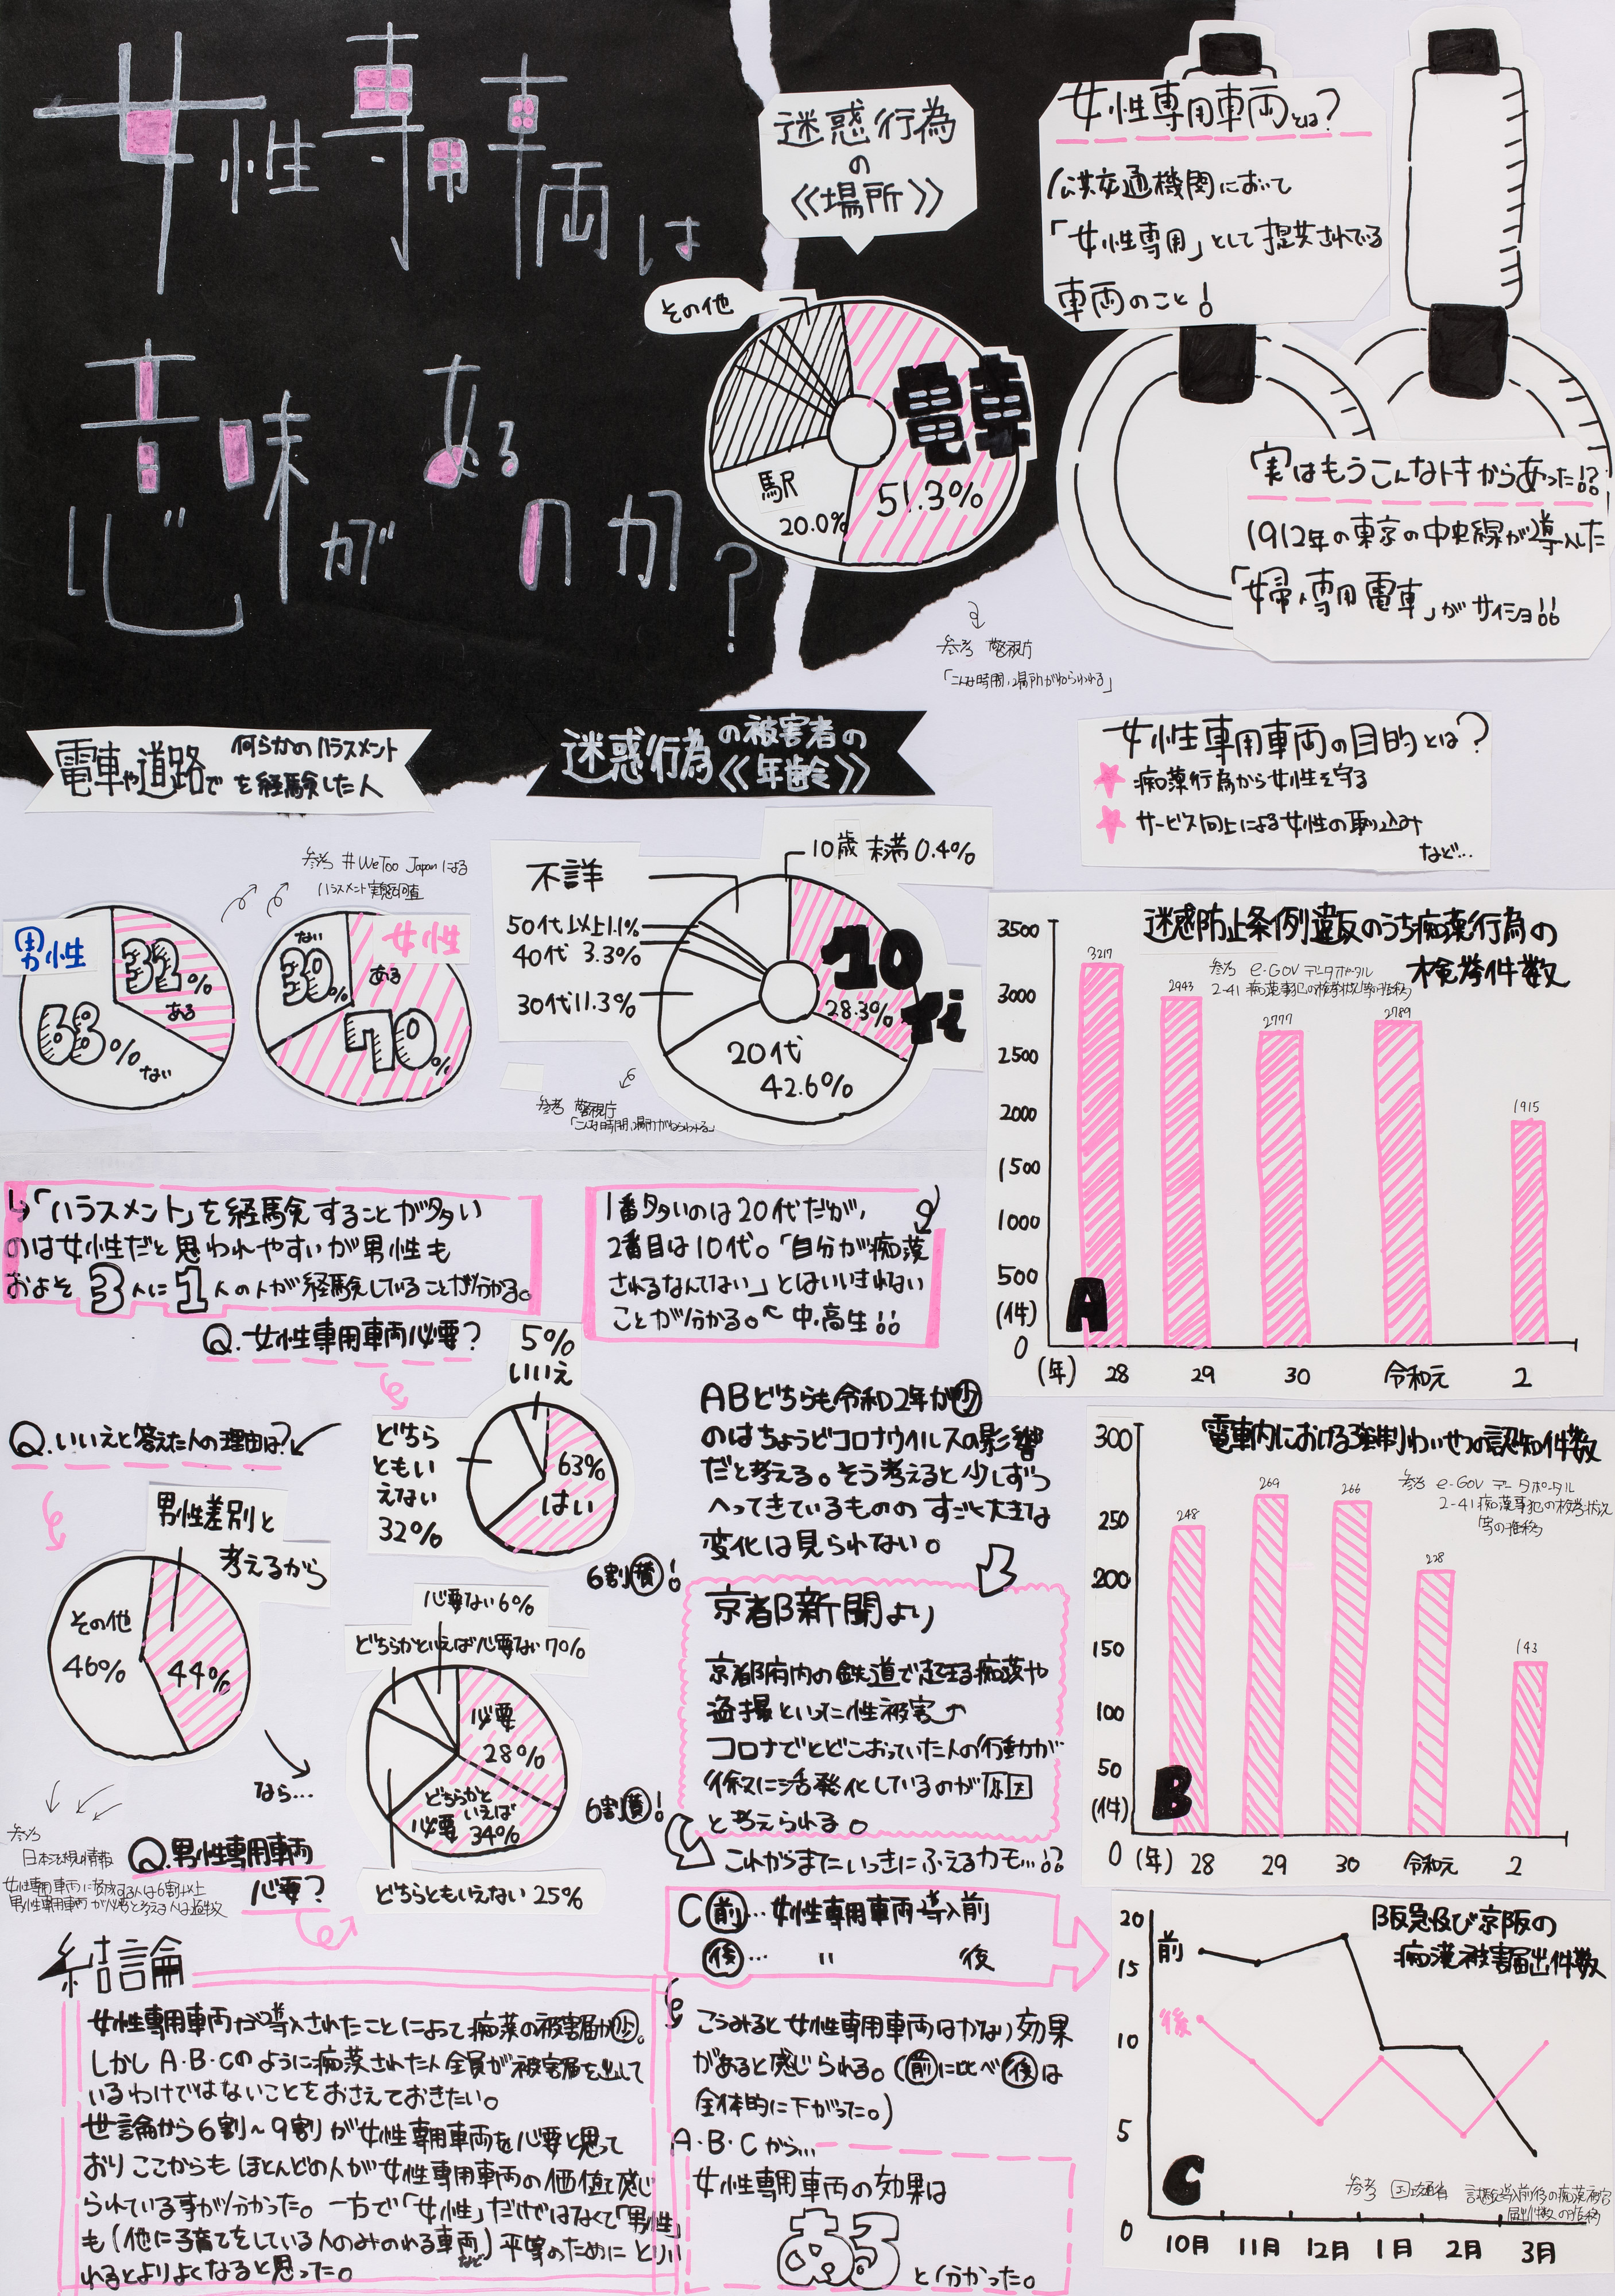 女性専用車両は
意味があるのか?
迷惑行為
の
《場所》
その他
電車
51.3%
駅
20.0%
参考 警視庁
「こんな時間、場所がねらわれる」
女性専用車両とは?
公共交通機関において
「女性専用」として提供されている
車両のこと!
実はもうこんなトキからあった!?
1912年の東京の中央線が導入した
「婦人専用電車」がサイショ!!
電車や道路で
何らかのハラスメント
を経験した人
参考 #WeToo Japanによる
ハラスメント実態調査
男性
32%
ある
68%
ない
女性
ない
30%
ある
70%
迷惑行為の被害者の
《年齢》
10歳未満0.4%
不詳
50代以上1.1%
40代 3.3%
30代11.3%
10代
28.3%
20代
42.6%
参考 警視庁
「こんな時間、場所がねらわれる」
女性専用車両の目的とは?
痴漢行為から女性を守る
サービス向上による女性の取り込み
など…
迷惑防止条例違反のうち痴漢行為の
検挙件数
参考 e-Gov データポータル
2-41 痴漢事犯の検挙状況等の推移
3500
3000
2500
2000
1500
1000
500
(件)
0
3217
2943
2777
2789
1915
A
(年) 28 29 30 令和元 2
↳「ハラスメント」を経験することが多い
のは女性だと思われやすいが男性も
およそ3人に1人の人が経験していることが分かる。
1番多いのは20代だが、
2番目は10代。「自分が痴漢
されるなんてない」とはいいきれない
ことが分かる。←中、高生!!
Q.女性専用車両必要?
5%
いいえ
どちら
ともい
えない
32%
63%
はい
6割(費)!
Q.いいえと答えた人の理由は?
男性差別と
考えるから
その他
46%
44%
なら…
参考
日本法規情報
女性専用車両に賛成する人は6割以上
男性専用車両が必要と考える人は過半数
Q.男性専用車両
必要?
必要ない6%
どちらかといえば必要ない7%
必要
28%
どちらかと
いえば
必要 34%
どちらともいえない25%
6割(費)!
ABどちらも令和2年が(少)
のはちょうどコロナウイルスの影響
だと考える。そう考えると少しずつ
へってきているものの すごく大きな
変化は見られない。
京都新聞より
京都府内の鉄道で起きる痴漢や
盗撮といった性被害↗
コロナでとどこおっていた人の行動が
徐々に活発化しているのが原因
と考えられる。
これからまたいっきにふえるカモ…!?
電車内における強制わいせつの認知件数
参考 e-Gov データポータル
2-41 痴漢事犯の検挙状況
等の推移
300
250
200
150
100
50
(件)
0
248
269
266
228
143
B
(年) 28 29 30 令和元 2
C(前)…女性専用車両導入前
(後)… 〃 後
阪急及び京阪の
痴漢被害届出件数
20
15
10
5
0
前
後
C
参考 国土交通省 試験導入前後の痴漢被害
届出件数の推移
10月 11月 12月 1月 2月 3月
こうみると女性専用車両はかなり効果
があると感じられる。((前)に比べ(後)は
全体的に下がった。)
A・B・Cから…
女性専用車両の効果は
ある
と分かった。
結論
女性専用車両が導入されたことによって痴漢の被害届が(少)。
しかしA・B・Cのように痴漢された人全員が被害届を出して
いるわけではないことをおさえておきたい。
世論から6割~9割が女性専用車両を必要と思って
おりここからもほとんどの人が女性専用車両の価値を感じ
られている事が分かった。一方で「女性」だけではなくて「男性」
も(他に子育てをしている人のみのれる車両など)平等のためにとりい
れるとよりよくなると思った。